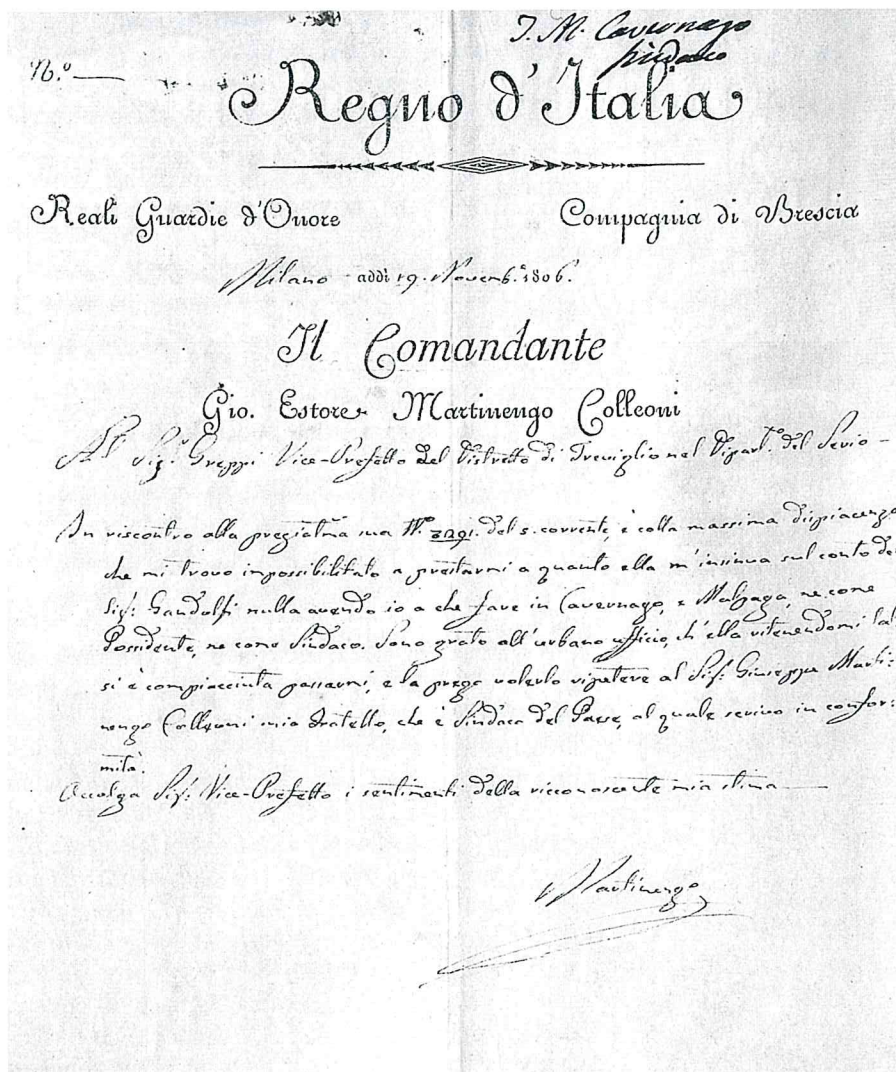 J. M. Cavernago
Sindaco
N.º
Regno d'Italia
Reali Guardie d'Onore Compagnia di Brescia
Milano addì 19. Novemb.ᵉ 1806.
Il Comandante
Gio. Estore Martinengo Colleoni
Al Sig.ʳ Greppi Vice-Prefetto del Distretto di Treviglio nel Dipart.ᵗᵒ del Serio
In riscontro alla pregiatma sua Nº 3291. del s. corrente, è colla massima dispiacenza
che mi trovo impossibilitato a prestarmi a quanto ella m'insinua sul conto del
Sig.ʳ Gandolfi nulla avendo io a che fare in Cavernago, e Malpaga, ne come
Possidente, ne come Sindaco. Sono grato all'urbano ufficio, ch'ella ritenendomi tal
si è compiacciuta passarmi, e la prego volerlo ripetere al Sig.ʳ Giuseppe Marti:
nengo Colleoni mio Fratello, che è Sindaco del Paese, al quale scrivo in confor:
mità.
Accolga Sig.ʳ Vice-Prefetto i sentimenti della riconoscente mia stima
Martinengo